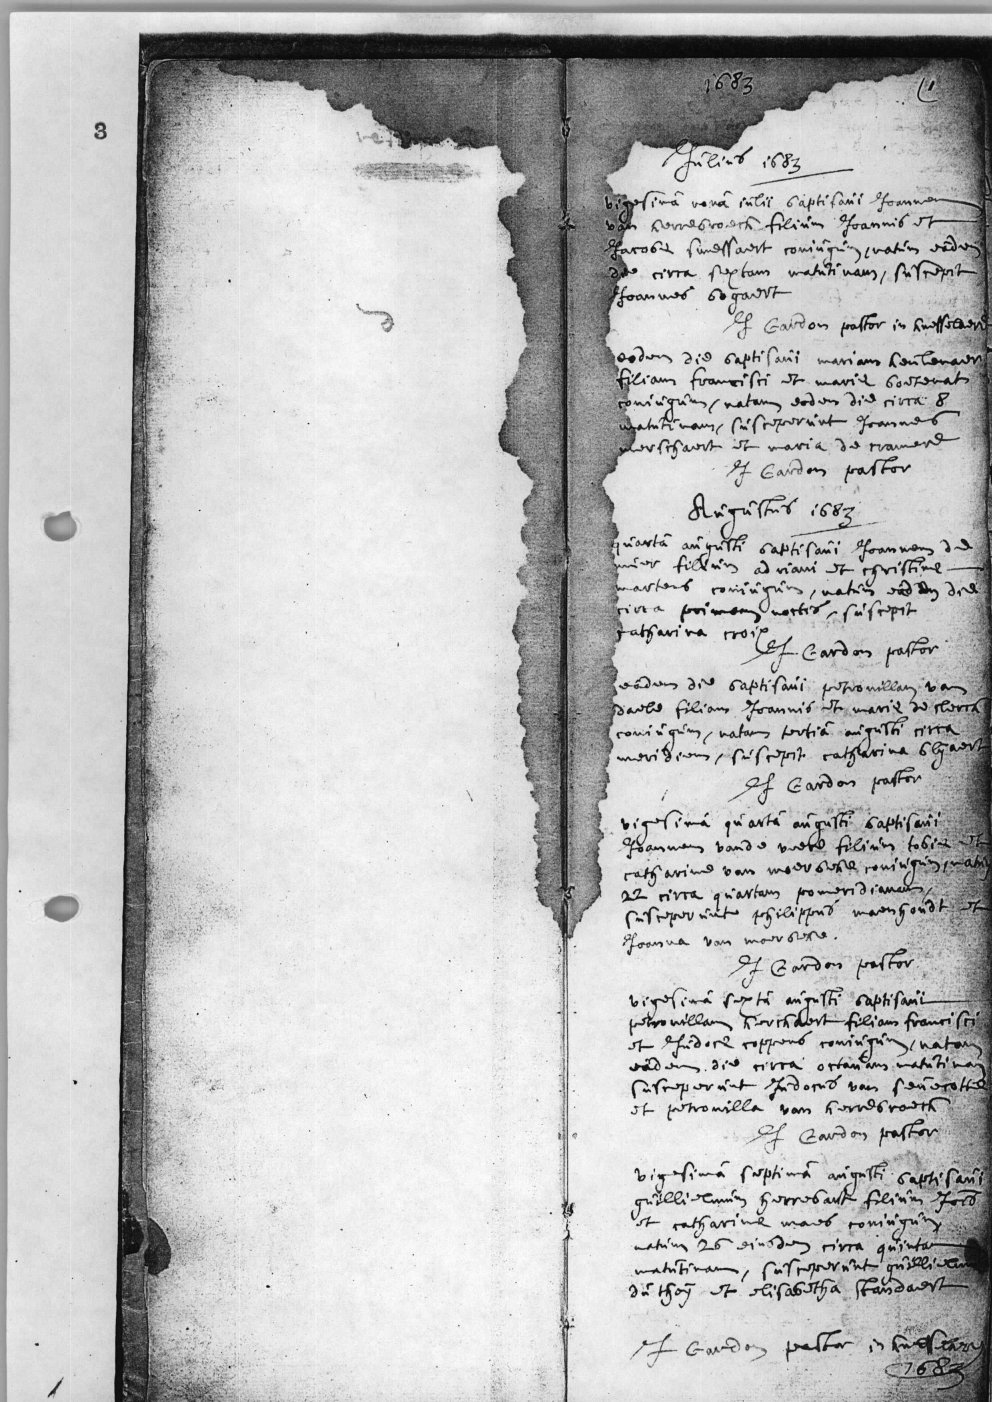 3
1683
Julius 1683
vigesimâ nonâ julii baptisavi Joannem
van herresroeck filium Joannis et
Jacobæ smessaert coniugum, natum eâdem
die circa sextam matutinam, suscepit
Joannes bogaert
J Gardon pastor in knesselaere
eodem die baptisavi mariam
filiam francisci et mariæ
coniugum, natam eodem die circa 8
matutinam, susceperunt Joannes
merschaert et maria de cramere
J Gardon pastor
Augustus 1683
quartâ augusti baptisavi Joannem de
filium adriani et christinæ
martens coniugum, natum eâdem die
circa primam noctis, suscepit
catharina croix
J Gardon pastor
eâdem die baptisavi petronillam van
daele filiam Joannis et mariæ de clercq
coniugum, natam tertiâ augusti circa
meridiem, suscepit catharina
J Gardon pastor
vigesimâ quartâ augusti baptisavi
Joannem vande veere filium tobiæ et
catharinæ van moerbeke coniugum, natum
22 circa quartam pomeridianam,
susceperunt philippus maenhoudt et
Joanna van moerbeke.
J Gardon pastor
vigesimâ sextâ augusti baptisavi
petronillam kerckaert filiam francisci
et Judocæ coppens coniugum, natam
eâdem die circa octavam matutinam
susceperunt Judocus van
et petronilla van herresroeck
J Gardon pastor
vigesimâ septimâ augusti baptisavi
guillielmum herrebaut filium
et catharinæ maes coniugum
natum 26 eiusdem circa quintam
matutinam, susceperunt guillielmus
du thoÿ et elisabetha standaert
J Gardon pastor in knesselaere
1683